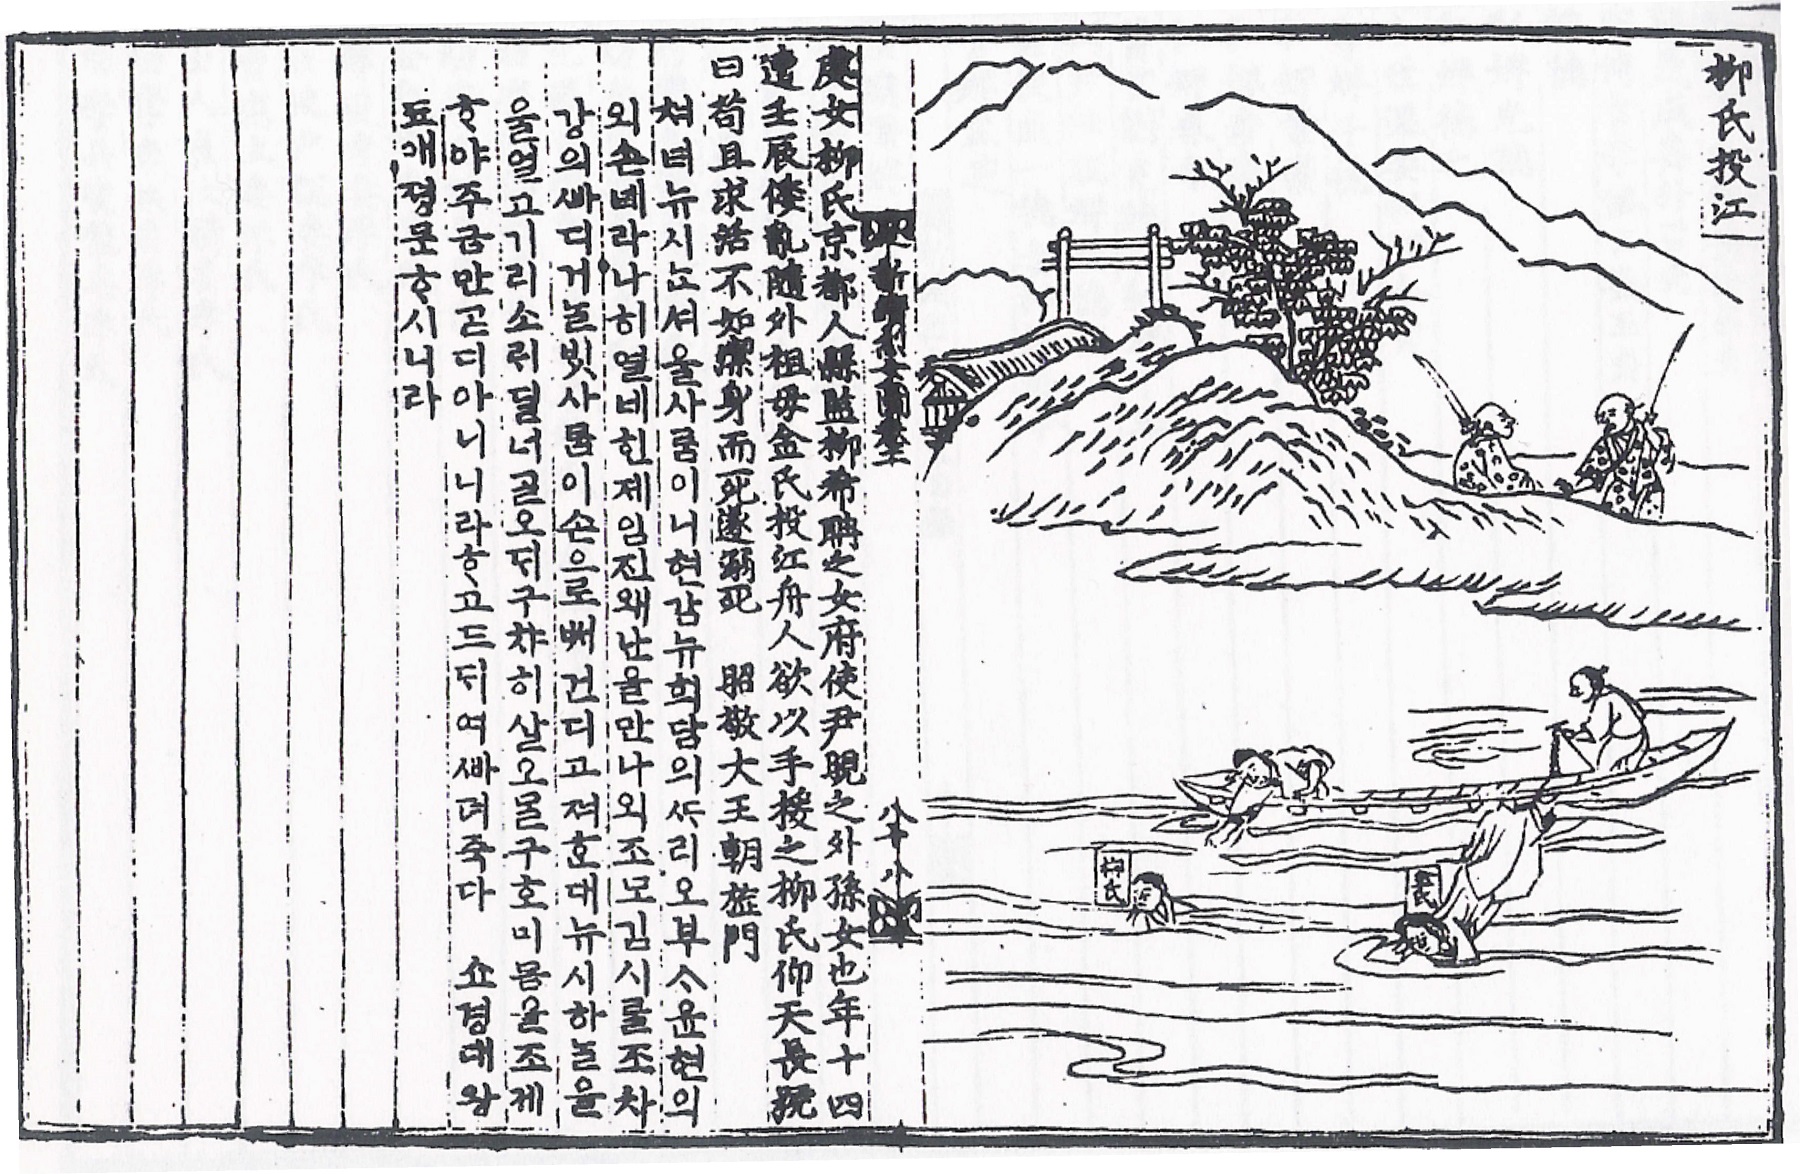 柳氏投江
柳氏
金氏
東國新續三綱烈女圖卷
八十八
處女柳氏京都人縣監柳希聃之女府使尹晛之外孫女也年十四
遭壬辰倭亂隨外祖母金氏投江舟人欲以手援之柳氏仰天長號
曰苟且求活不如潔身而死遂溺死 昭敬大王朝旌門
쳐녀뉴시ᄂᆞᆫ셔울사ᄅᆞᆷ이니현감뉴희담의ᄯᆞᆯ이오부ᄉᆞ윤현의
외손녜라나히열네힌제임진왜난을만나외조모김시ᄅᆞᆯ조차
강의ᄲᅡ디거ᄂᆞᆯᄇᆡᆺ사ᄅᆞᆷ이손으로ᄲᅢ건디고져호대뉴시하ᄂᆞᆯ을
울얼고기리소ᄅᆡ딜너ᄀᆞᆯ오ᄃᆡ구챠히살오ᄆᆞᆯ구호미몸을조케
ᄒᆞ야주굼만ᄀᆞᆮ디아니니라ᄒᆞ고드ᄃᆡ여ᄲᅡ뎌죽다 쇼경대왕
됴애졍문ᄒᆞ시니라